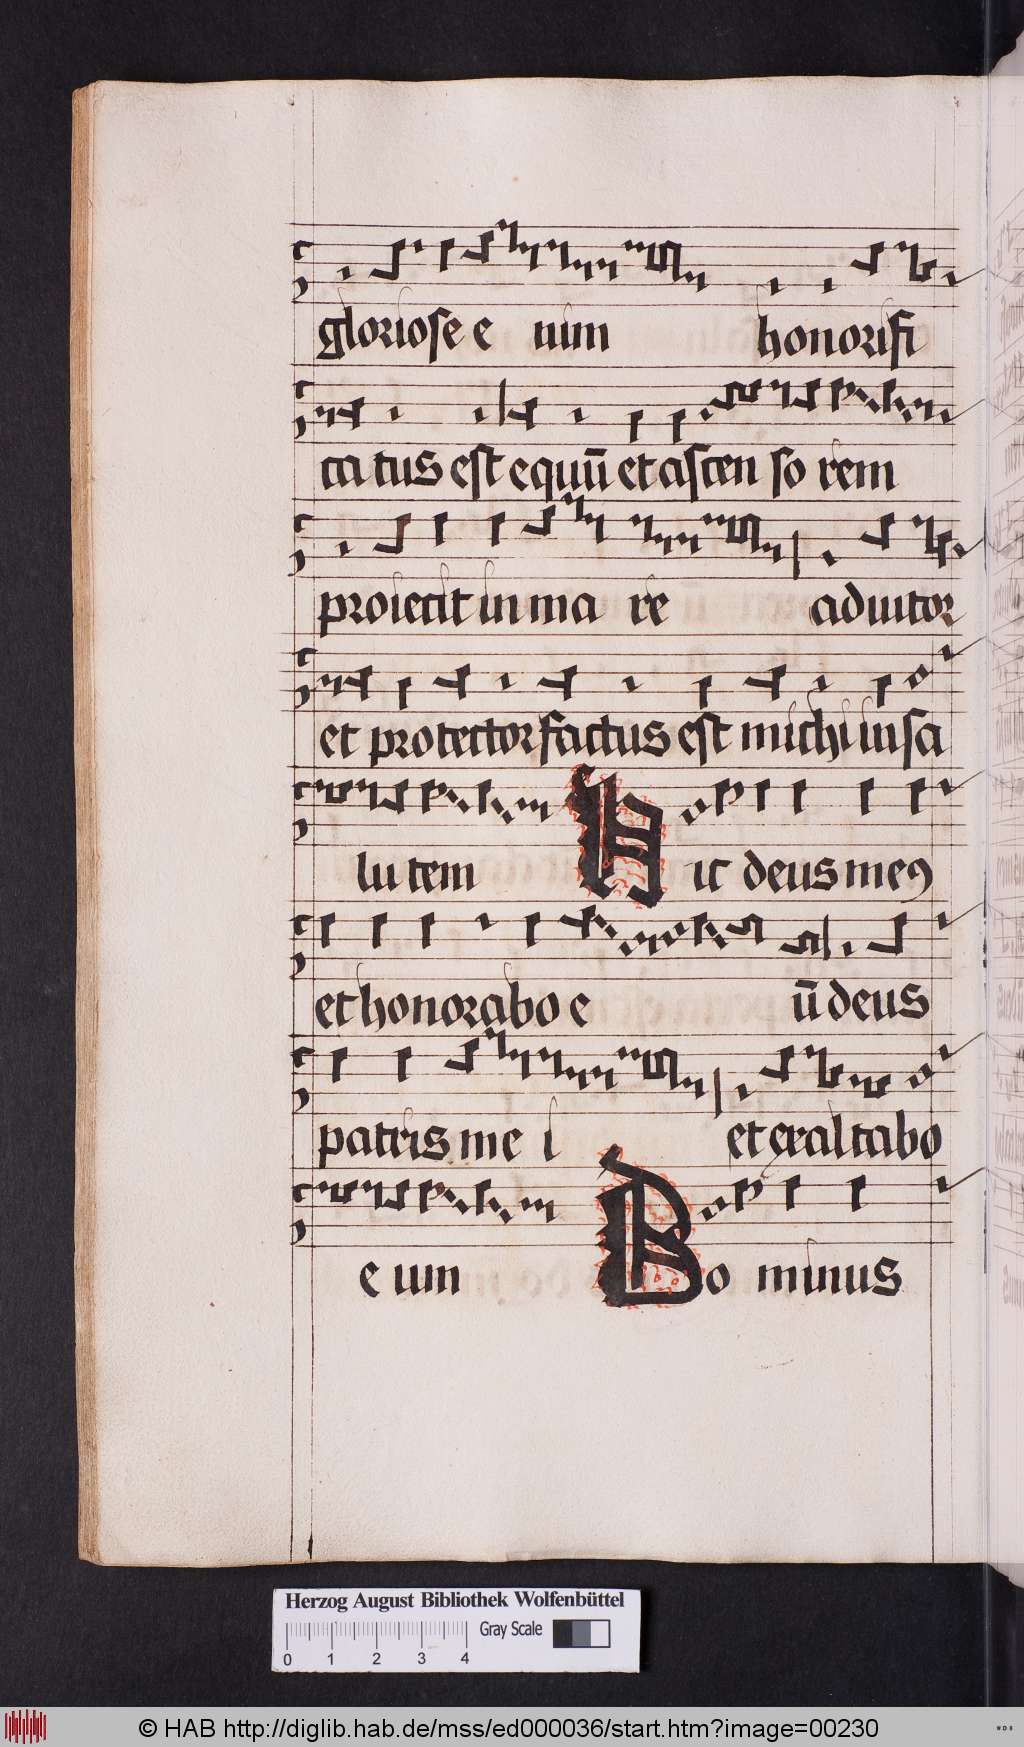 gloriose e nim honorifi
ca tus est equū et ascen so rem
proiecit in ma re adiutor
et protector factus est michi in sa
lu tem Hic deus meꝯ
et honorabo e ū deus
patris me i et exaltabo
e um Do minus
Herzog August Bibliothek Wolfenbüttel
Gray Scale
0 1 2 3 4
© HAB http://diglib.hab.de/mss/ed000036/start.htm?image=00230